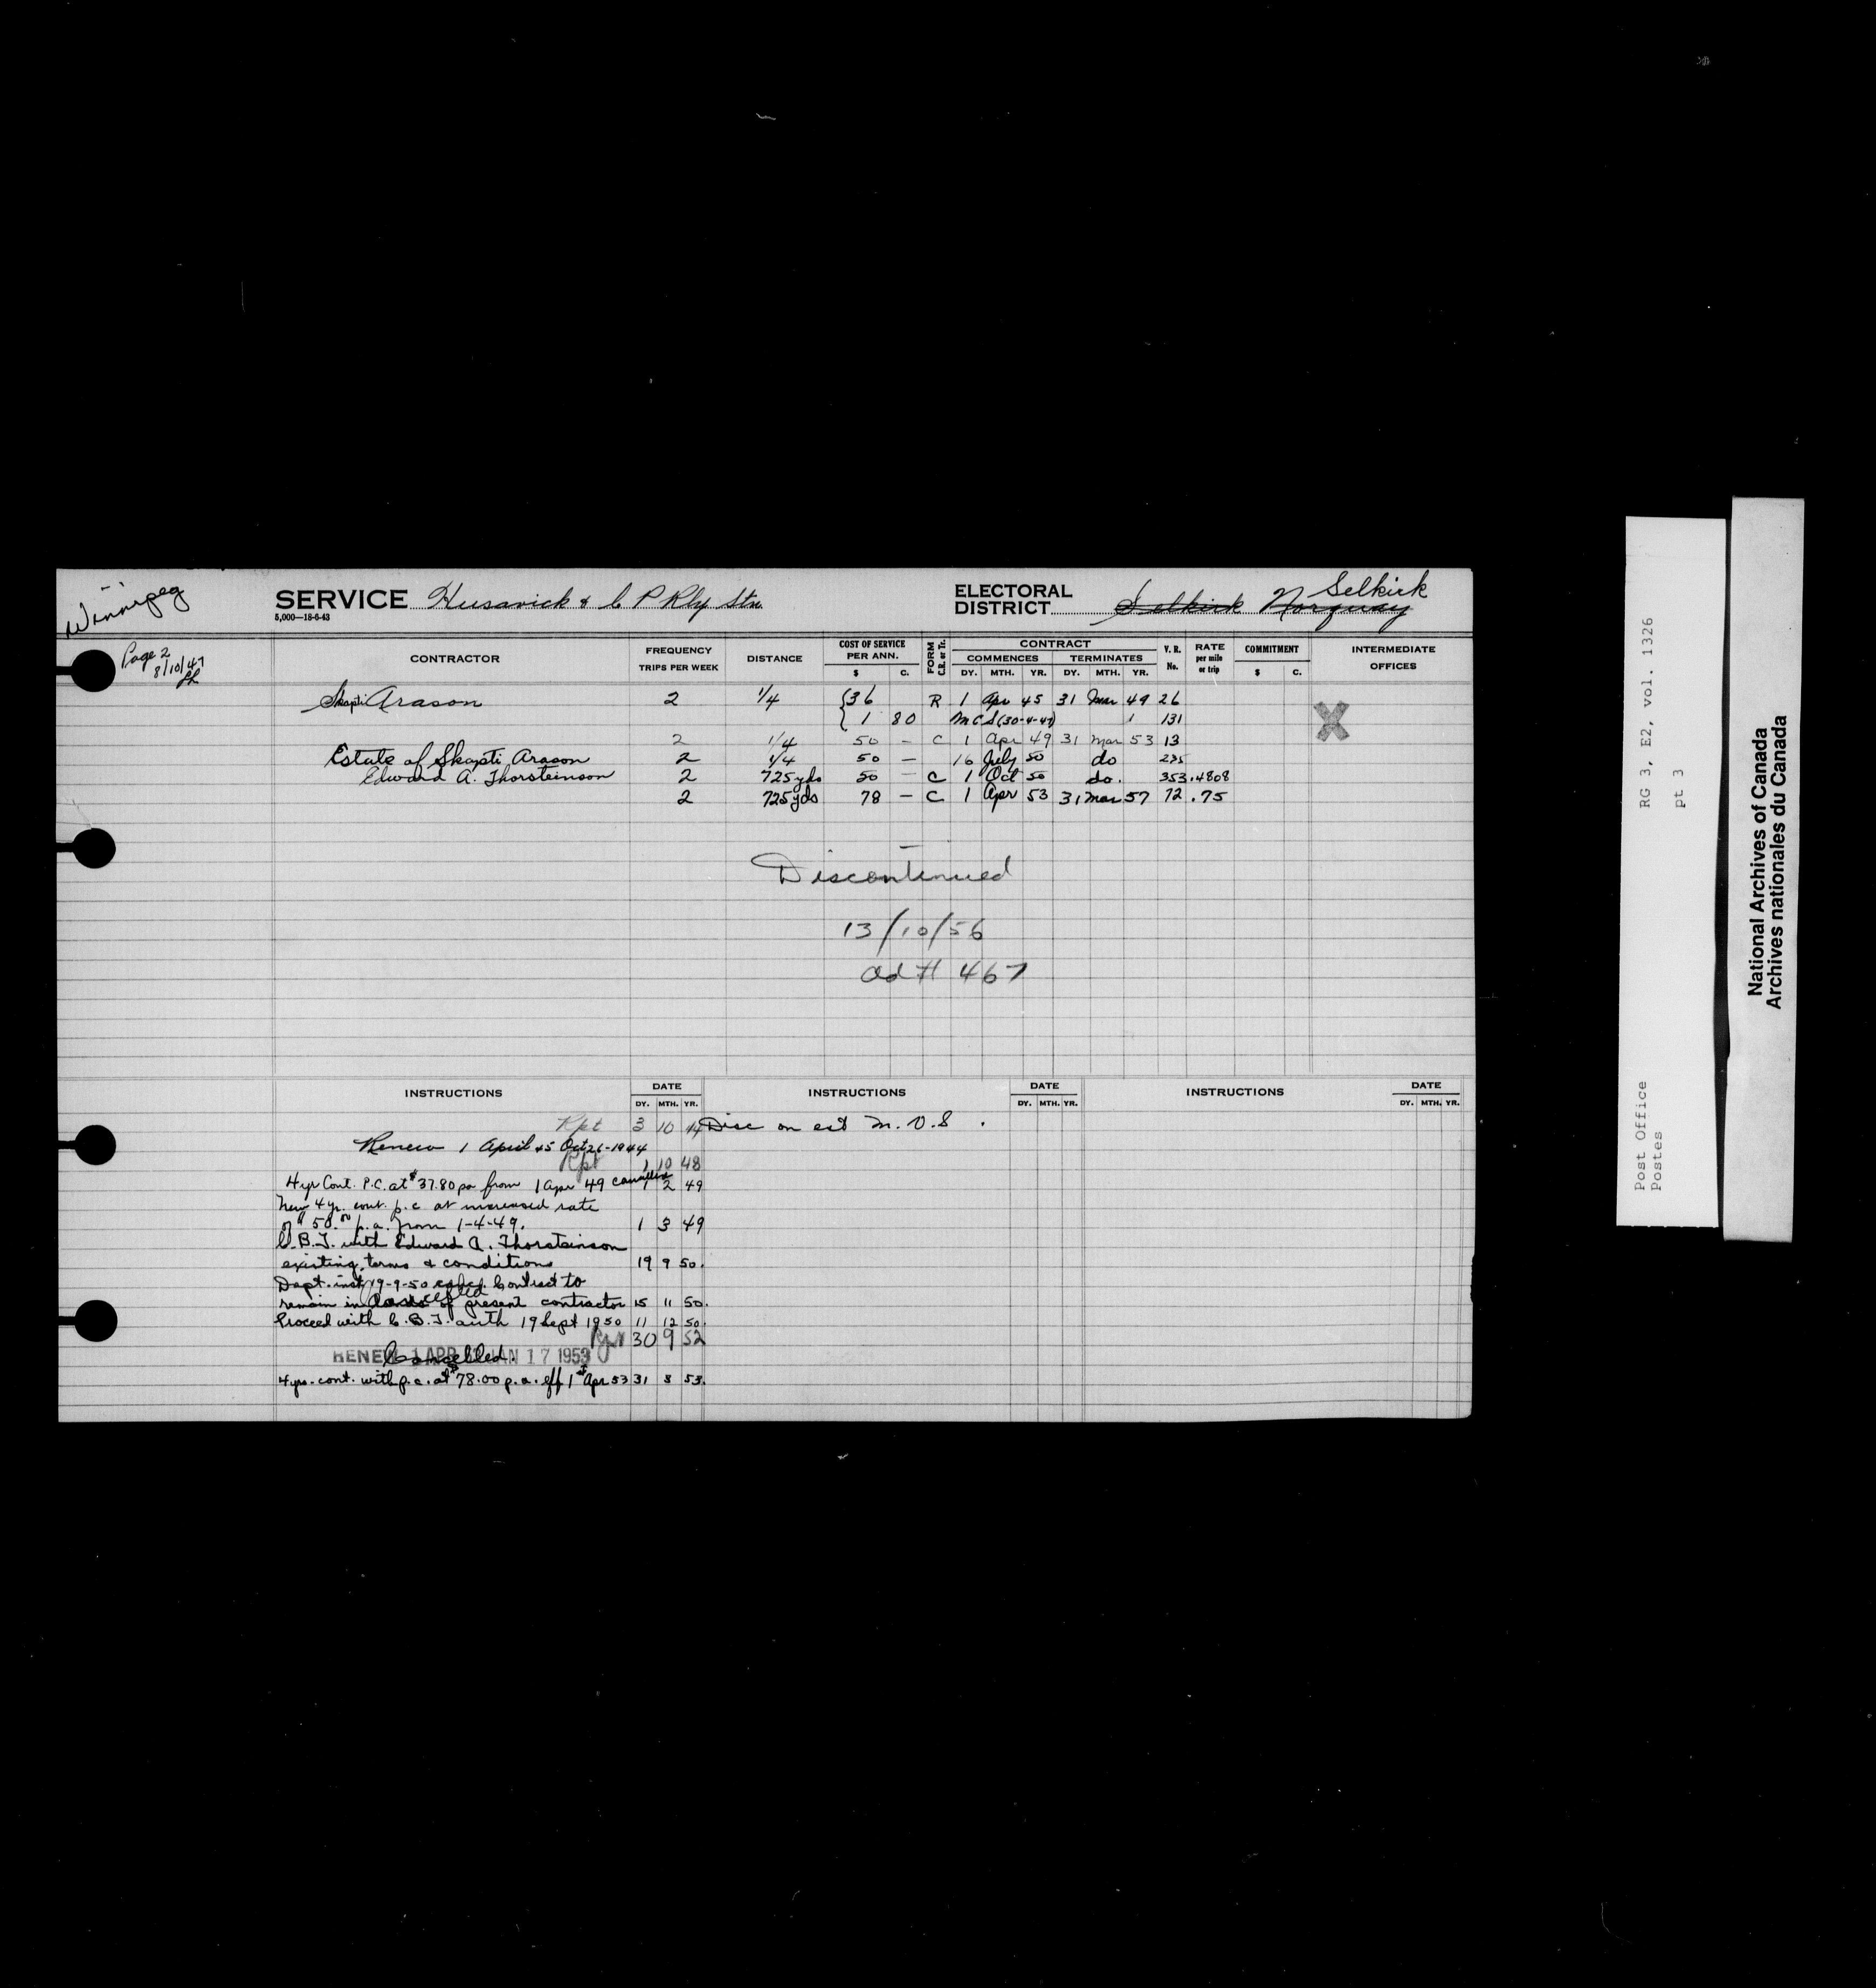 Winnipeg
SERVICE Husavick & C P Rly Stn
5,000—18-6-43
ELECTORAL DISTRICT Selkirk Norquay Selkirk
Page 2
8/10/47
CONTRACTOR
FREQUENCY TRIPS PER WEEK
DISTANCE
COST OF SERVICE PER ANN. $ C.
FORM C.R. or Tr.
CONTRACT
COMMENCES DY. MTH. YR.
TERMINATES DY. MTH. YR.
V. R. No.
RATE per mile or trip
COMMITMENT $ C.
INTERMEDIATE OFFICES
Skapti Arason 2 1/4 36 R 1 Apr 45 31 Mar 49 26
1 80 M C S (30-4-47) 1 131
2 1/4 50 — C 1 Apr 49 31 Mar 53 13
Estate of Skapti Arason 2 1/4 50 — 16 July 50 do 235
Edward A. Thorsteinson 2 725 yds 50 — C 1 Oct 50 do. 353 .4808
2 725 yds 78 — C 1 Apr 53 31 Mar 57 72 .75
X
Discontinued
13/10/56
Ad # 467
INSTRUCTIONS DATE DY. MTH. YR. INSTRUCTIONS DATE DY. MTH. YR. INSTRUCTIONS DATE DY. MTH. YR.
Rpt 3 10 44 Disc on est M.O.S.
Renew 1 April 45 Oct 26-1944
Rpt 1 10 48
4 yr Cont. P.C. at $37.80 pa from 1 Apr 49 cancelled 1 2 49
New 4 yr. cont. p.c at increased rate
of $50.00 p.a. from 1-4-49. 1 3 49
C.B.T. with Edward A. Thorsteinson
existing terms & conditions 19 9 50.
Dept. inst 19-9-50 Contract to
remain in cancelled of present contractor 15 11 50.
Proceed with C.B.T. auth 19 Sept 1950 11 12 50.
Rpt 30 9 52
RENEW 1 APR JAN 17 1953
Cancelled.
4 yrs. cont. with p.c. at $78.00 p.a. eff 1st Apr 53 31 3 53.
Post Office
Postes
RG 3, E2, vol. 1326
pt 3
National Archives of Canada
Archives nationales du Canada